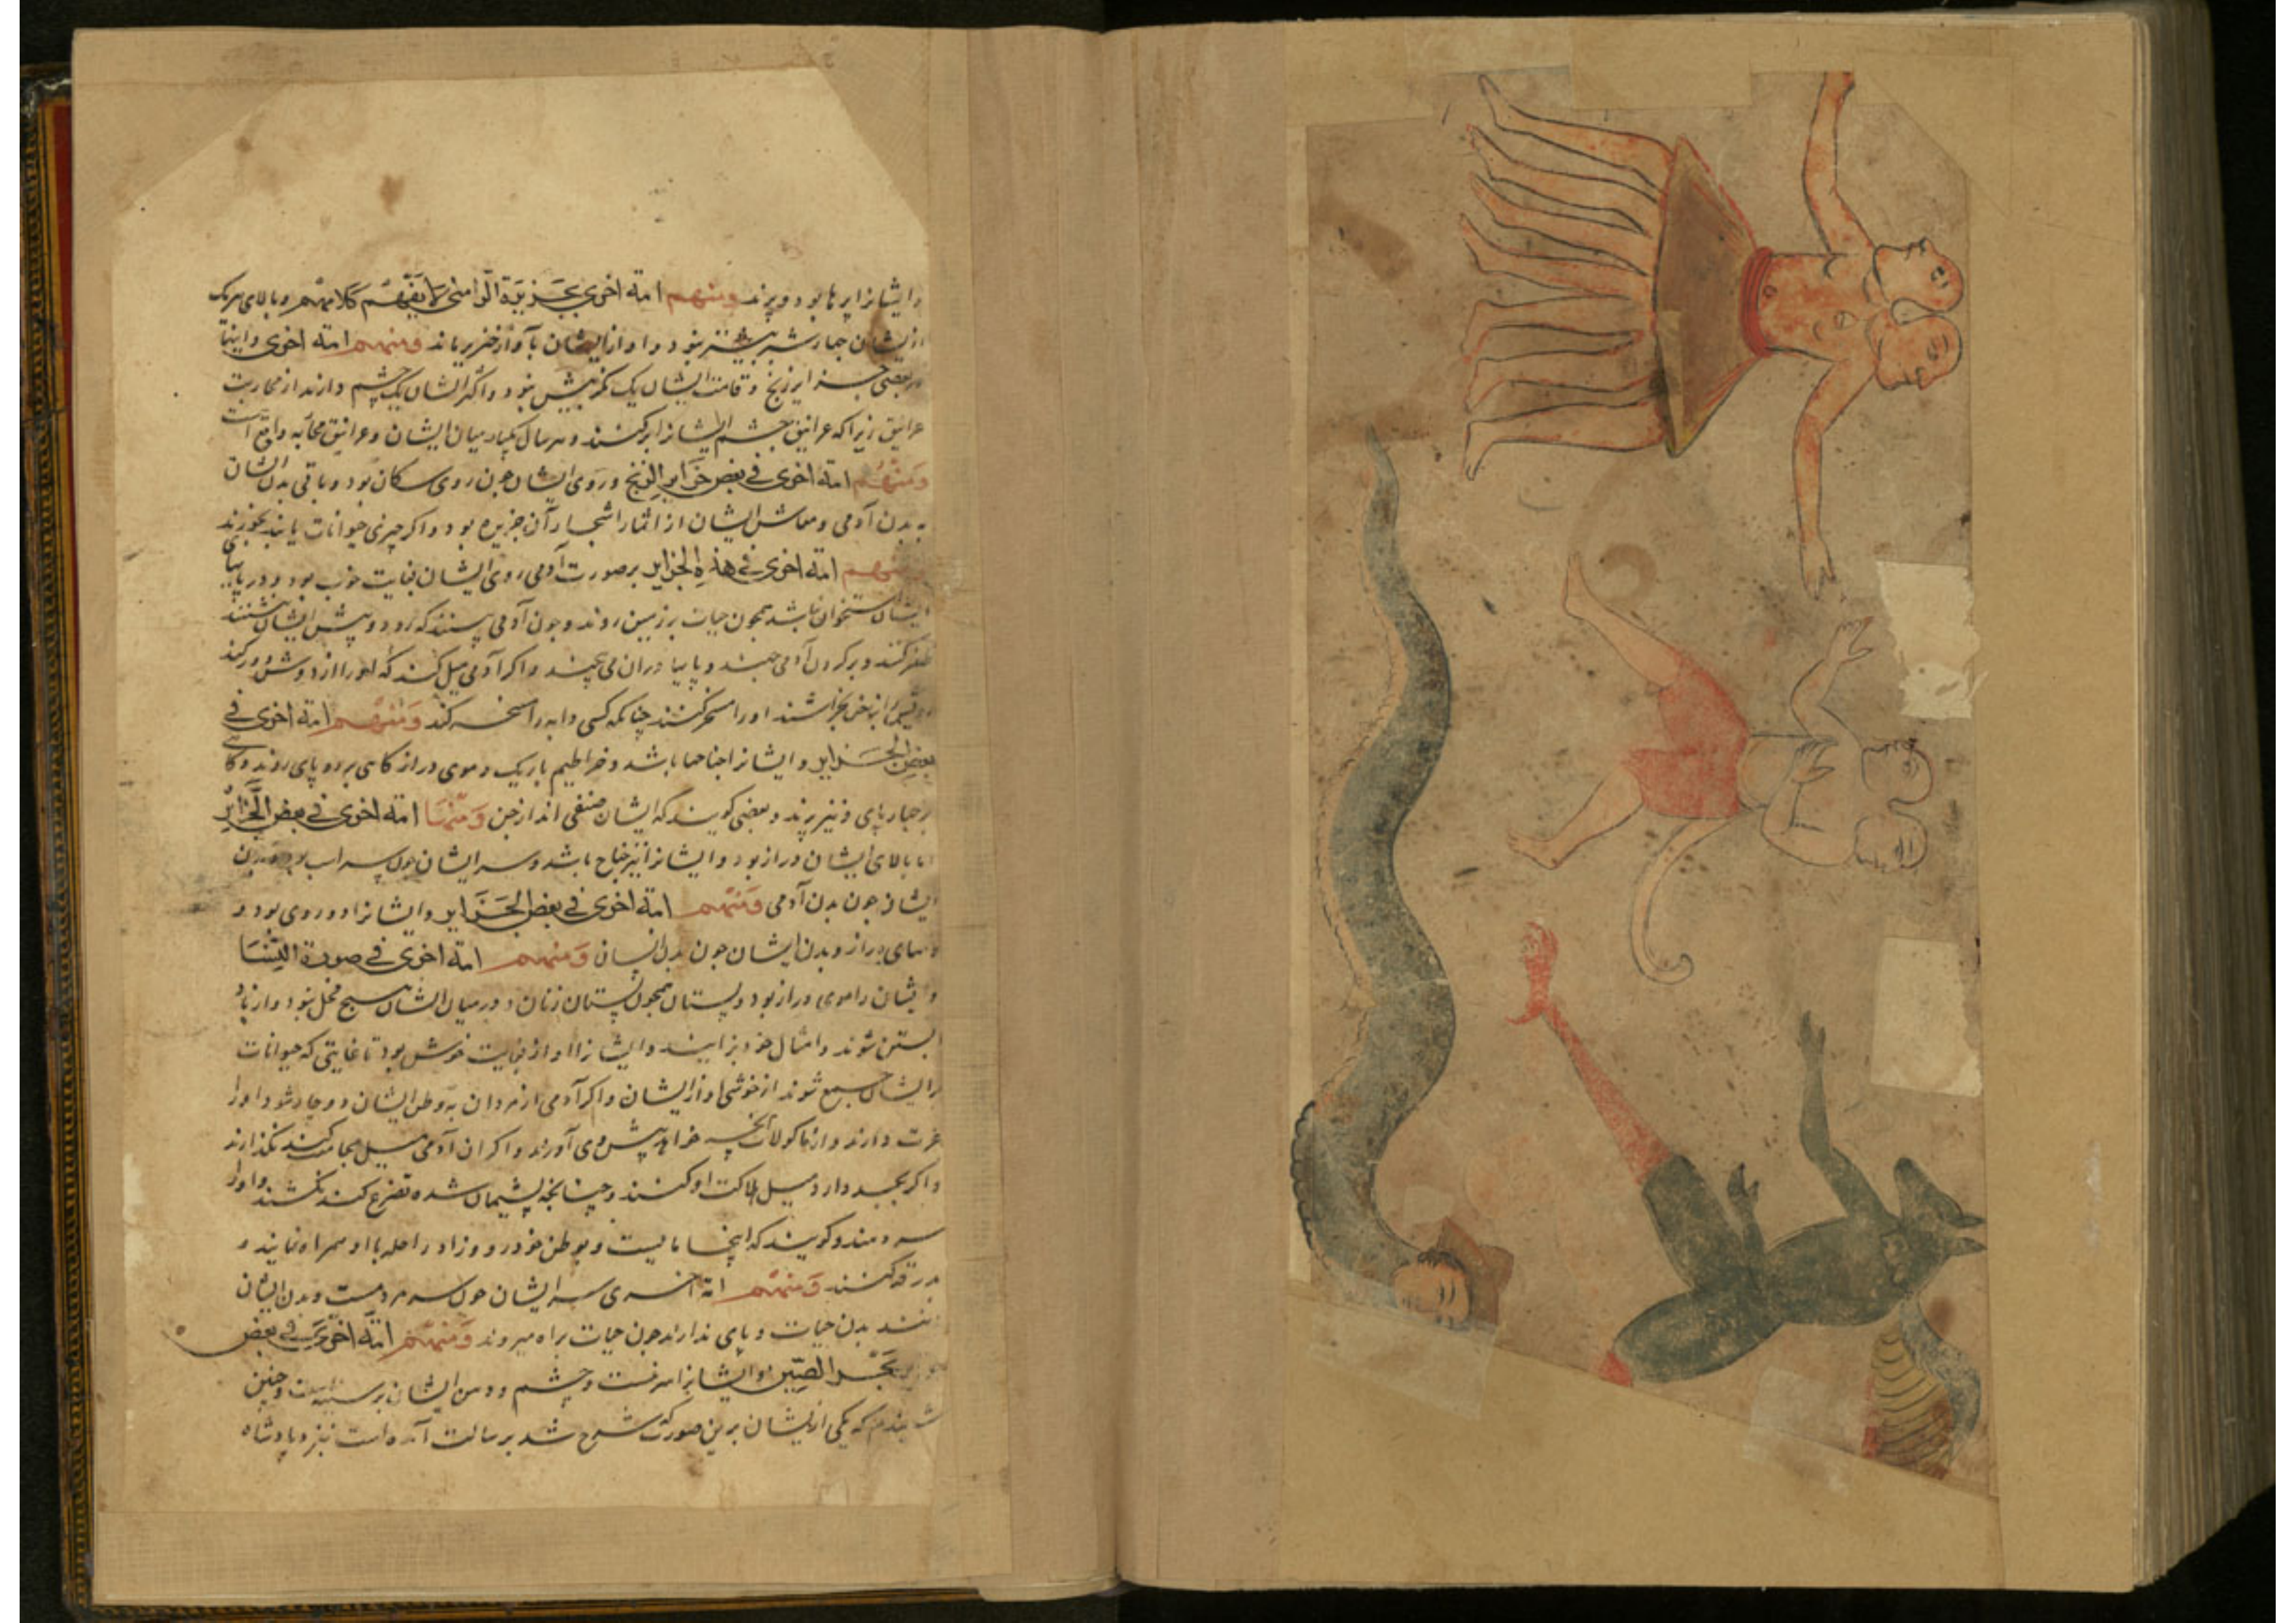 و ایشانرا پرها بود و پرند ومنهم امة اخری بجزیرة الرامنی لا یفهم کلامهم و بالای هریک
ازیشان چهار شبر بیشتر نبود و اواز ایشان بآواز خنزیر ماند ومنهم امة اخری و اینها
بعضی جزایر زنج و قامت ایشان یک گز بیش نبود و اکثر ایشان یک چشم دارند از محاربت
غرانیق زیرا که غرانیق چشم ایشانرا بر کنند و هر سال یکبار میان ایشان و غرانیق محاربه واقع است
ومنهم امة اخری فی بعض جزایر الزنج و روی ایشان چون روی سکان بود و باقی بدن ایشان
به بدن آدمی و معاش ایشان از اثمار اشجار آن جزیره بود و اکر چیزی حیوانات یابند بخورند
ومنهم امة اخری فی هذه الجزایر بر صورت آدمی روی ایشان بغایت خوب بود و در پایهای
ایشان استخوان نباشد همچون حیات بر زمین روند و چون آدمی بینند که رود و پیش ایشان نشیند
ظفر کنند و بر کردن آدمی جهند و پایها دران می پیچند و اکر آدمی میل کند که او را از دوش دور کند
بناخن بخراشند او را مسخر کنند چنانکه کسی دابه را مسخر کند ومنهم امة اخری فی
بعض الجزایر و ایشانرا اجنحها باشد و خراطیم باریک و موی دراز کاهی بر دو پای روند و کاهی
بر چهار پای و نیز پرند و بعضی کویند که ایشان صنفی اند از جن ومنها امة اخری فی بعض الجزائر
اما بالای ایشان دراز بود و ایشانرا نیز جناح باشد و سر ایشان چون سر اسب بود و بدن
ایشان چون بدن آدمی ومنهم امة اخری فی بعض الجزایر و ایشانرا دو روی بود و
دمهای دراز و بدن ایشان چون بدن انسان ومنهم امة اخری فی صورة النساء
و ایشان را موی دراز بود و پستان همچون پستان زنان و در میان ایشان هیچ فحل نبود و از باد
ابستن شوند و امثال خود بزایند و ایشانرا اواز بغایت خوش بود تا غایتی که حیوانات
بر ایشان جمع شوند از خوشی اواز ایشان و اکر آدمی از مردان به وطن ایشان دوچار شود او را
عزت دارند و از ماکولات آنچه خواهد پیش وی آورند و اکر ان آدمی میل مجامعت کند نکذارند
و اکر بجد دارد میل هلاکت او کنند و چنانچه پشیمان شده تضرع کند نکشند و او را
سر دهند و کویند که اینجا مایست و بوطن خود رو و زاد و راحله با او همراه نمایند و
بدرقه کنند ومنهم امة اخری سر ایشان چون سر مردمست و بدن ایشان
مانند بدن حیات و پای ندارند چون حیات براه میروند ومنهم امة اخری فی بعض
جزایر بحر الصین و ایشانرا سر نیست و چشم و دهن ایشان بر سینه است و چنین
شنیدم که یکی از ایشان برین صورت که شرح شد برسالت آمده است نیز و پادشاه